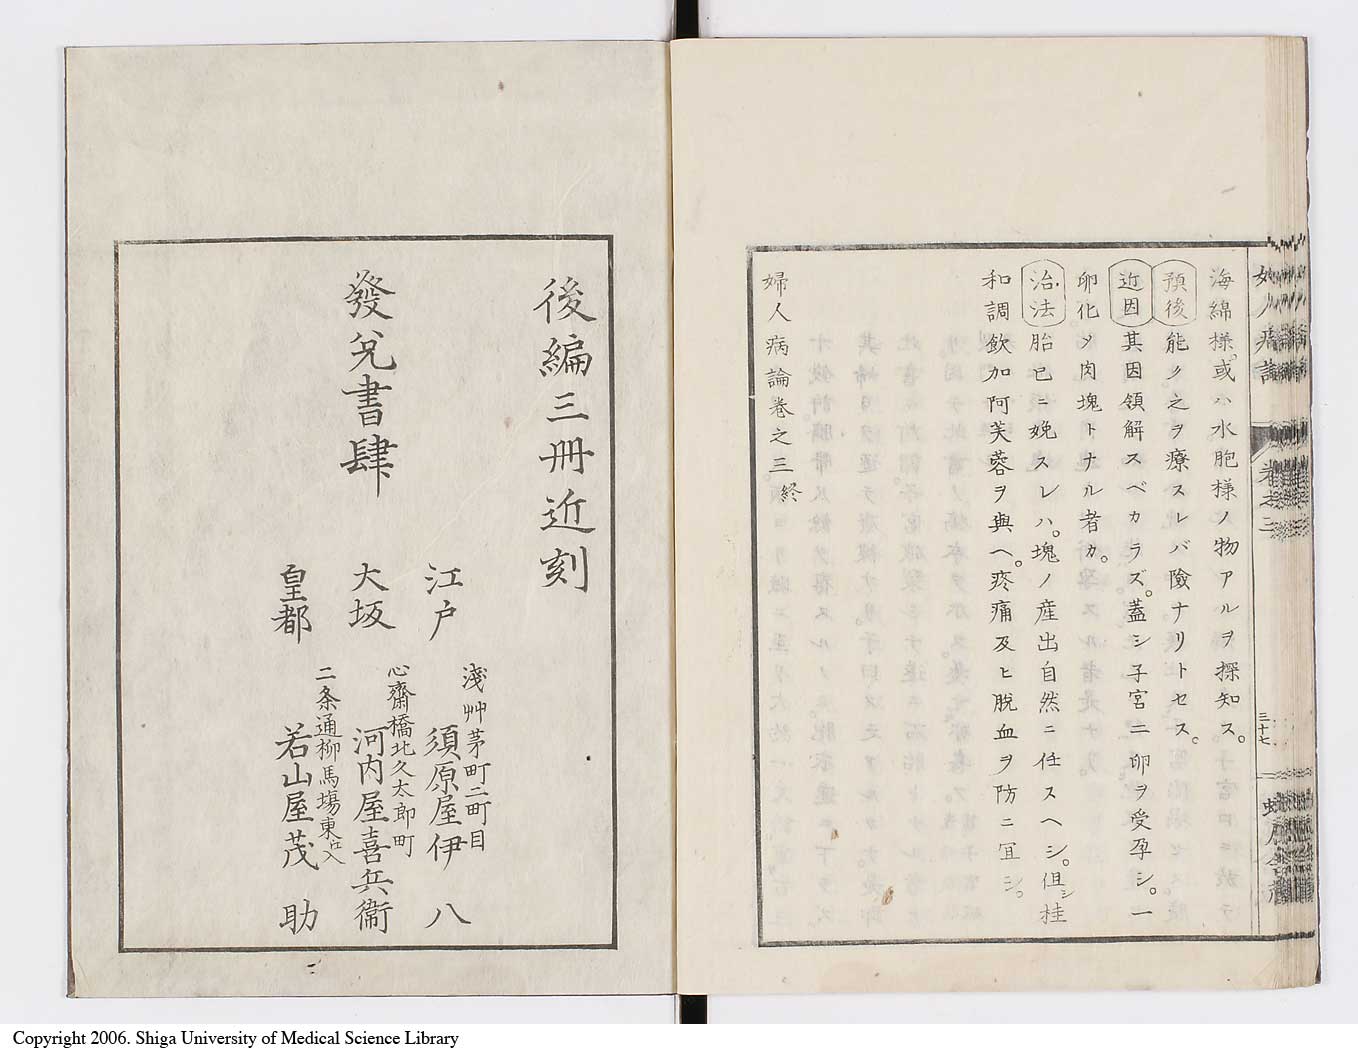 海綿様。或ハ水胞様ノ物アルヲ探知ス。
預後 能ク之ヲ療スレバ險ナリトセス。
近因 其因領解スベカラズ。蓋シ子宮二卵ヲ受孕シ。一
卵化〆肉塊トナル者カ。
治法 胎已ニ娩スレハ。塊ノ産出自然ニ任スヘシ。但シ桂
和調飲加阿芙蓉ヲ與ヘ。疼痛及ヒ脱血ヲ防ニ宜シ。
婦人病論卷之三終
三十七
後編三冊近刻
發兌書肆
江戸 淺艸茅町二町目 須原屋伊八
大坂 心齋橋北久太郎町 河内屋喜兵衞
皇都 二条通柳馬塲東江入 若山屋茂助
Copyright 2006. Shiga University of Medical Science Library